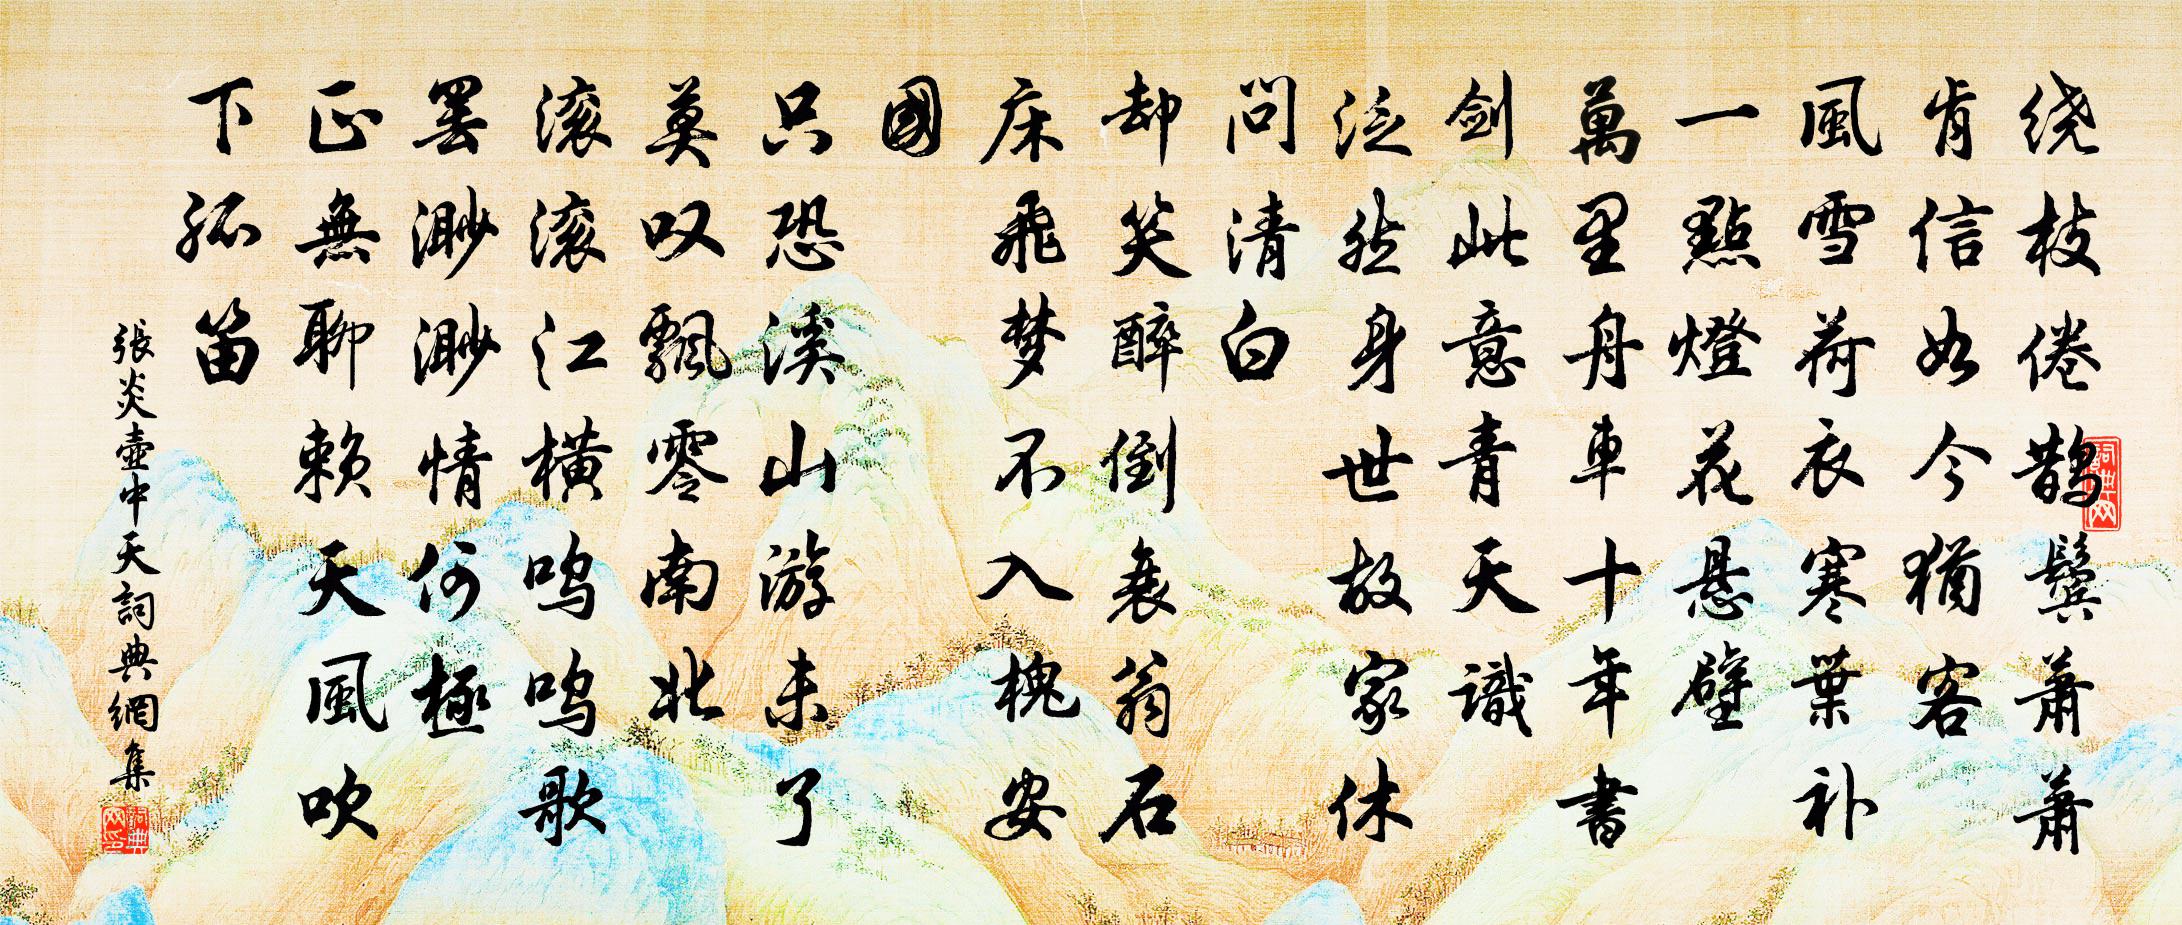 绕枝倦鹊鬓萧萧
肯信如今犹客
風雪荷衣寒葉补
一點燈花悬壁
萬里舟車十年書
剑此意青天識
泛然身世故家休
问清白
却笑醉倒衰翁石
床飛梦不入槐安
國
只恐溪山游未了
莫叹飄零南北
滚滚江横呜呜歌
罢渺渺情何極
正無聊赖天風吹
下孤笛
張炎壶中天詞典網集
詞典网
詞典网印